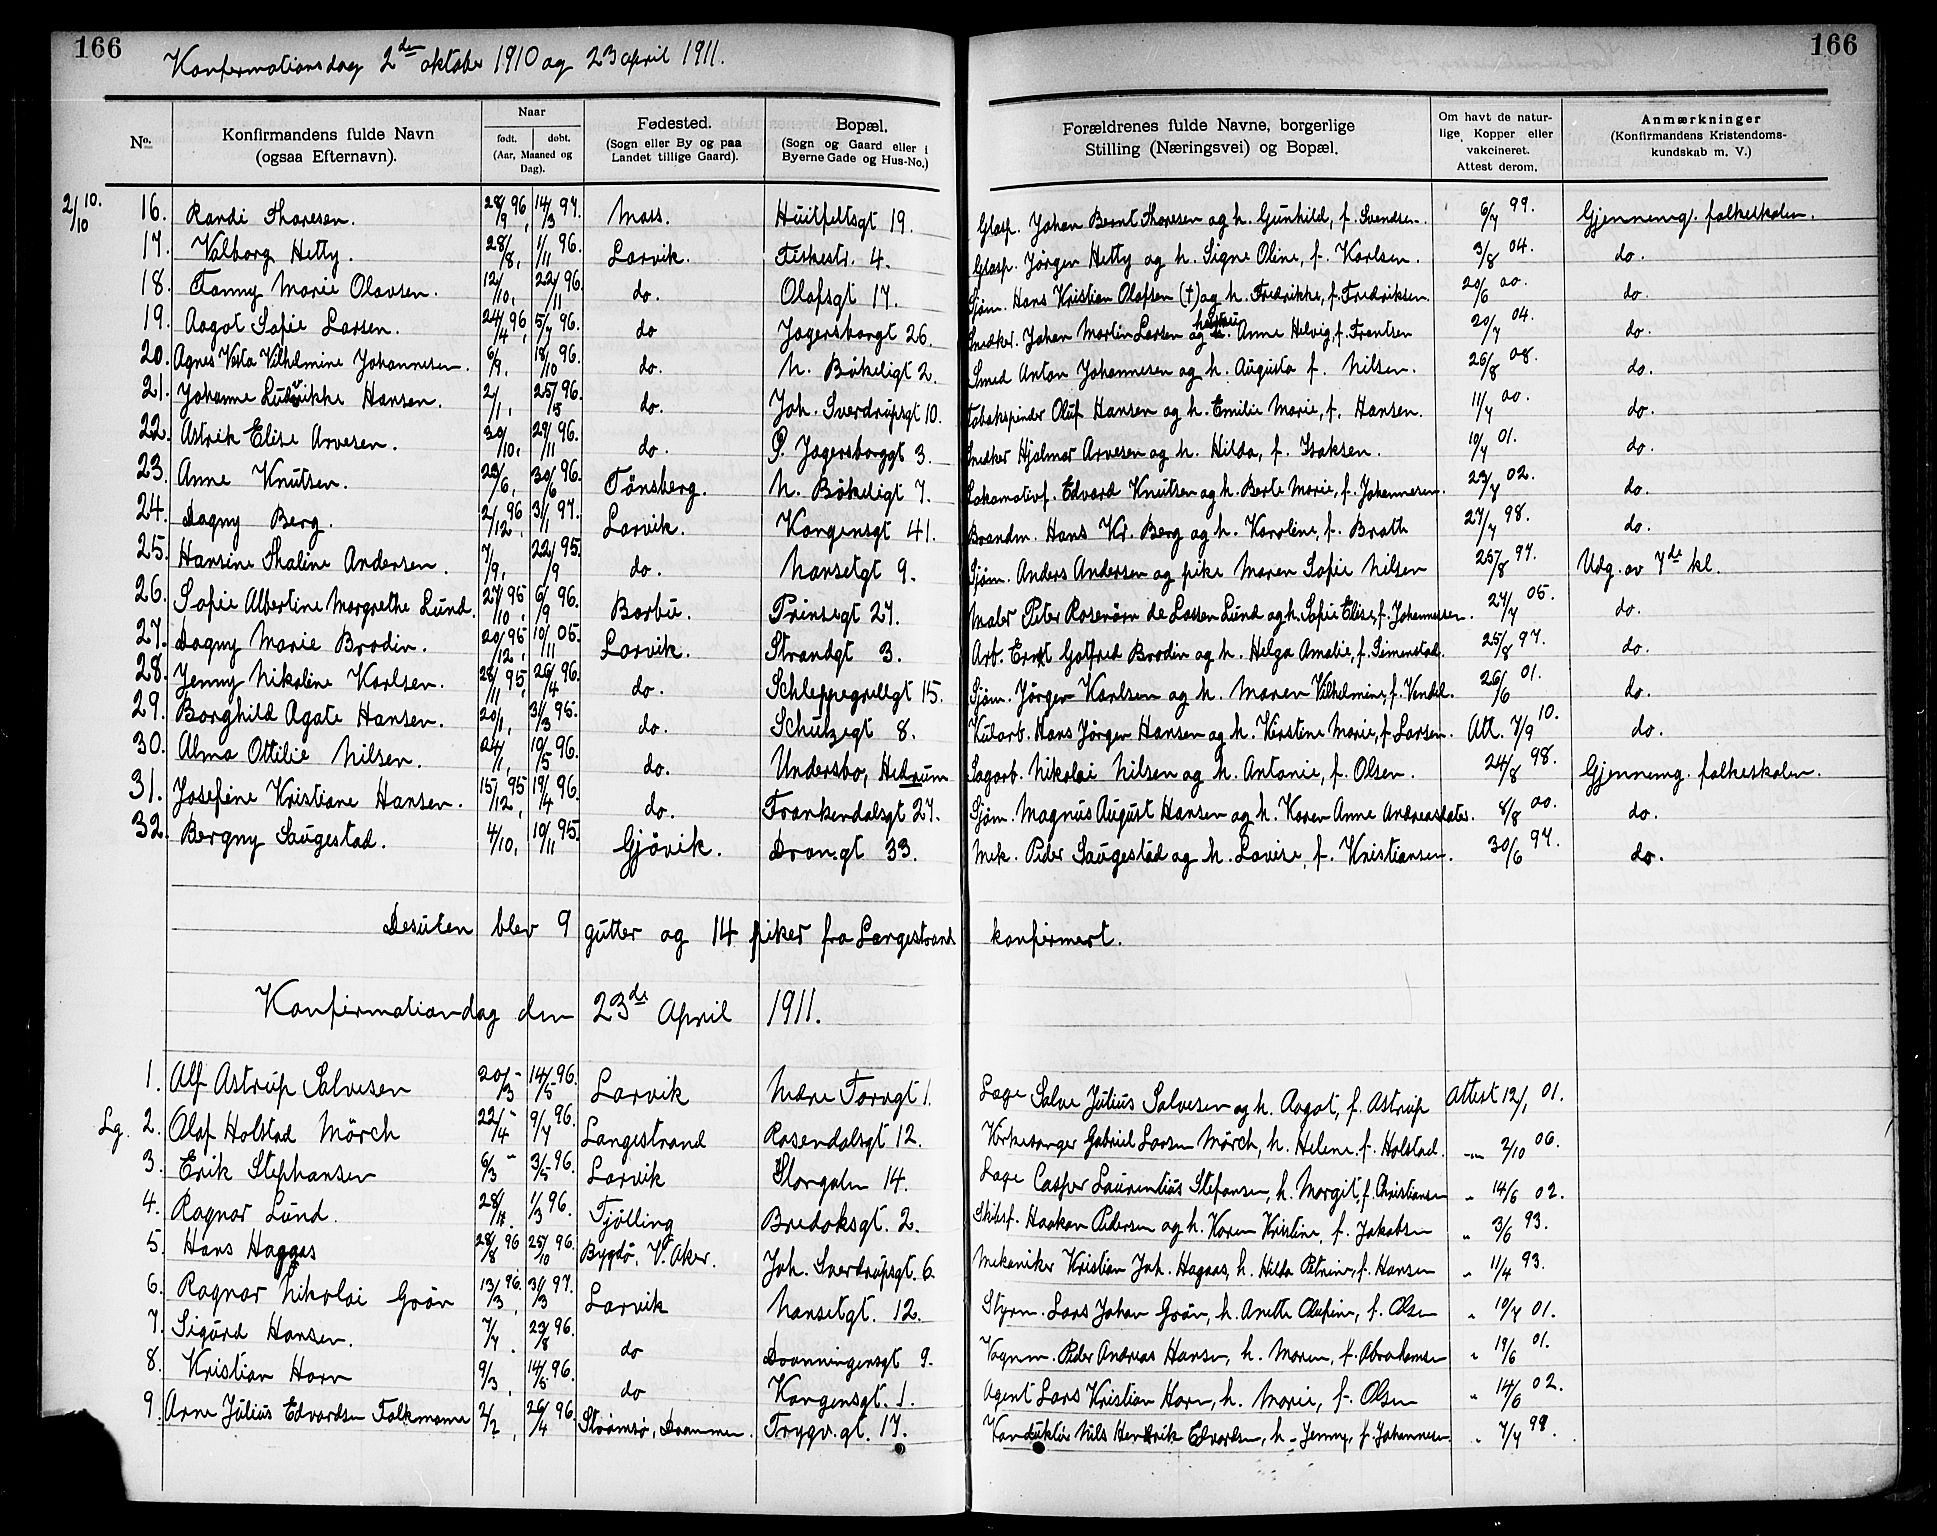 166
Konfirmationsdag 2den oktober 1910 og 23 april 1911.
166
No.
Konfirmandens fulde Navn (ogsaa Efternavn).
Naar
født. døbt.
(Aar, Maaned og Dag).
Fødested.
(Sogn eller By og paa Landet tillige Gaard).
Bopæl.
(Sogn og Gaard eller i Byerne Gade og Hus-No.)
Forældrenes fulde Navne, borgerlige Stilling (Næringsvei) og Bopæl.
Om havt de naturlige Kopper eller vakcineret. Attest derom.
Anmærkninger
(Konfirmandens Kristendomskundskab m. V.)
2/10 10. 16. Randi Thoresen. 28/9 96, 14/3 97. Moss. Huitfeltsgt 19. Glasp. Johan Bernt Thoresen og h. Gunhild, f. Svendsen. 6/7 99. Gjennemg. folkeskolen.
17. Valborg Hetty. 28/8, 1/11 96. Larvik. Fiskestr. 4. Glasp. Jørgen Hetty og h. Signe Oline, f. Karlsen. 3/8 04. do.
18. Fanny Marie Olavsen. 12/10, 22/11 96. do. Olafsgt 17. Sjøm. Hans Kristian Olafsen (†) og h. Fredrikke, f. Fredriksen. 20/6 00. do.
19. Aagot Sofie Larsen. 24/4 96, 5/7 96. do Jagersborgt 26. Snedker. Johan Martin Larsen og hustru Anne Helvig, f. Frantsen 20/7 04. do.
20. Agnes Vesta Vilhelmine Johannesen. 6/9, 18/10 96. do. N. Bökeligt 2. Smed Anton Johannesen og h. Augusta f. Nilsen. 26/8 08. do.
21. Johanne Ludvikke Hansen. 2/1, 25/5 96. do. Joh. Sverdrupsgt 10. Tobakspinder Oluf Hansen og h. Emilie Marie, f. Hansen. 11/7 00. do.
22. Astrik Elise Arvesen. 30/10, 29/11 96. do. P. Jagersborggt 3. Snedker Hjalmar Arvesen og h. Hilda, f. Isaksen. 10/7 01. do.
23. Anne Knutsen. 23/6, 30/6 96. Tønsberg. N. Bökeligt 7. Lokomotivf. Edvard Knutsen og h. Berte Marie, f. Johannesen. 23/7 02. do.
24. Dagny Berg. 2/12 96, 31/1 97. Larvik. Kongensgt 41. Brandm. Hans Kr. Berg og h. Karoline, f. Brath 27/7 98. do.
25. Hansine Thaline Andersen. 7/9, 22/9 95. do. Nansetgt 9. Sjøm. Anders Andersen og pike Maren Sofie Nilsen 25/8 97. Udg. av 7de kl.
26. Sofie Albertine Margrethe Lund. 27/10 95, 6/9 96. Barbu. Prinsegt 27. Maler Peter Rosenörn de Lassen Lund og h. Sofie Elise, f. Johannesen. 27/7 05. do.
27. Dagny Marie Brodin. 20/12 95, 10/11 05. Larvik. Strandgt 3. Arb. Ernst Gotfred Brodin og h. Helga Amalie, f. Semenstad. 25/8 97. do.
28. Jenny Nikoline Karlsen. 28/11 95, 26/4 96. do. Schleppegrellgt 15. Sjøm. Jörgen Karlsen og h. Maren Vilhelmine, f. Vendel. 26/6 01. do.
29. Borghild Agate Hansen. 20/1, 31/3 95. do. Schulzegt 8. Kularb. Hans Jörgen Hansen og h. Kirstine Marie, f. Larsen. Att. 7/9 10. do.
30. Alma Ottilie Nilsen. 24/1, 10/5 96. do. Undersbo, Hedrum Sagarb. Nikolai Nilsen og h. Antonie, f. Olsen. 24/8 98. Gjennemg. folkeskolen.
31. Josefine Kristiane Hansen. 15/12 95, 19/4 96. do. Frankendalsgt 27. Sjøm. Magnus August Hansen og h. Karen Anne Andreasdater. 8/8 00. do.
32. Bergny Saugestad. 4/10, 10/11 95. Gjövik. Dron.gt 33. Mek. Peder Saugestad og h. Lovise, f. Kristiansen. 30/6 97. do.
Desuten blev 9 gutter og 14 piker fra Langestrand konfirmert.
Konfirmationdag den 23de April 1911.
1. Alf Astrup Salvesen 20/3 - 14/5 96. Larvik Nedre Torvgt 1. Læge Salve Julius Salvesen og h. Aagot, f. Astrup Attest 12/1 01.
Lg. 2. Olaf Holstad Mörch 22/4 - 9/7 96. Langestrand Rosendalsgt 12. Kirkesanger Gabriel Larsen Mörch, h. Helene f. Holstad. 2/10 06.
3. Erik Stephansen 6/3 - 3/5 96. Larvik Storgaten 14. Læge Casper Laurentius Stefansen, h. Margit, f. Christiansen " 14/6 02.
4. Ragnar Lund. 28/11. 1/3 96. Tjølling Bredoksgt. 2. Skibsf. Haakon Pedersen og h. Karen Kristine, f. Jakobsen " 3/6 93.
5. Hans Hagaas 28/8 96 25/10 96. Bygdö, V. Aker. Joh. Sverdrupsgt. 6. Mekaniker Kristian Joh. Hagaas, h. Hilda Petrine, f. Hansen " 11/4 93.
6. Ragnar Nikolai Grön 13/3 96. 31/3 97. Larvik Nansetgt. 12. Styrm. Lars Johan Grön, h. Anette Olufine, f. Olsen " 10/7 01.
7. Sigurd Hansen. 7/7. 23/8 96. do Dronningensgt 9. Vognm. Peder Andreas Hansen, h. Maren, f. Abrahamsen " 19/6 01.
8. Kristian Horn 9/3, 14/5 96. do Kongensgt. 1. Agent Lars Kristian Horn, h. Marie, f. Olsen " 14/6 02.
9. Arne Julius Edvardsen Folkmann 2/2, 26/4 96. Strømsø, Drammen. Trygv.gt. 17. Konduktör Nils Hendrik Edvardsen, h. Jenny, f. Johannesen. " 7/7 98.